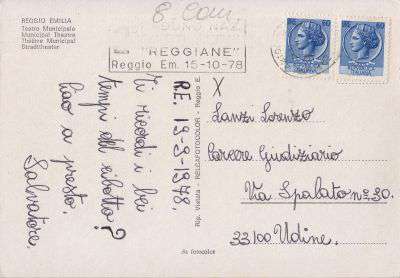 REGGIO EMILIA
Teatro Municipale
Municipal Theatre
Théâtre Municipal
Stadttheater
"REGGIANE"
Reggio Em. 15-10-78
R.E. 19-9-1978,
Ti ricordi i bei
tempi del ribatto?
Ciao a presto.
Salvatore.
Rip. Vietata - RELCAFOTOCOLOR - Reggio E.
X
Lanzi Lorenzo
Carcere Giudiziario
Via Spalato nº 30.
33100 Udine.